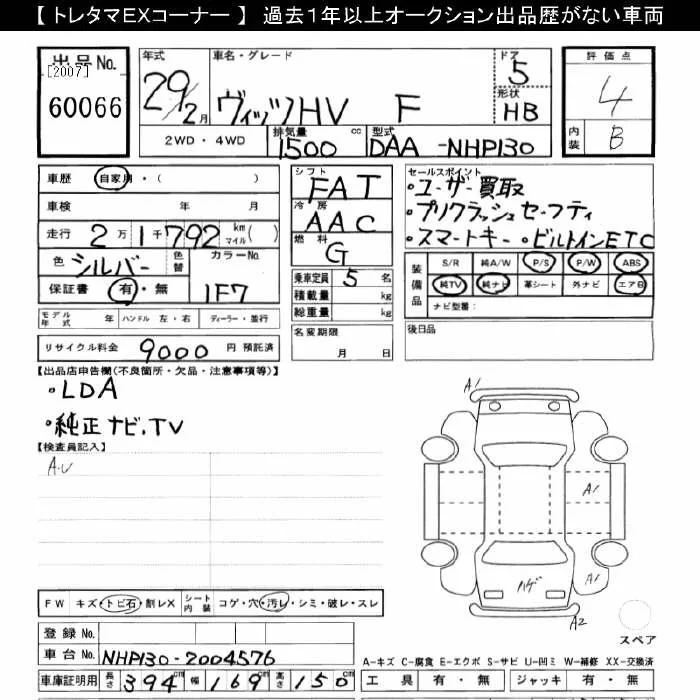 【 トレタマEXコーナー 】 過去1年以上オークション出品歴がない車両
出品 No.
[2007]
60066
年式
29/2月
車名・グレード
ヴィッツHV F
ドア
5
形状
HB
評価点
4
内装
B
2WD・4WD
排気量
1500 cc
型式
DAA -NHP130
車歴 自家用・( )
車検 年 月
走行 2万1千792 km マイル( )
色 シルバー 色替
カラーNo.
1F7
保証書 有・無
モデル年式 年 ハンドル 左・右 ディーラー・並行
リサイクル料金 9000 円 預託済
シフト
FAT
冷房
AAC
燃料
G
乗車定員 5 名
積載量 kg
総重量 kg
名変期限
月 日
セールスポイント
・ユーザー買取
・プリクラッシュセーフティ
・スマートキー ・ビルトインETC
装備品
S/R 純A/W P/S P/W ABS
純TV 純ナビ 革シート 外ナビ エアB
ナビ型番:
後日品
【出品店申告欄(不良箇所・欠品・注意事項等)】
・LDA
・純正ナビ.TV
【検査員記入】
A.U
A1
A1
A1
ハゲ
A2
スペア
FW キズ・トビ石・割レX シート内装 コゲ・穴・汚レ・シミ・破レ・スレ
登録 No.
車台 No. NHP130-2004576
車庫証明用 長さ 394 cm 幅 169 cm 高さ 150 cm
A-キズ C-腐食 E-エクボ S-サビ U-凹ミ W-補修 XX-交換済
工具 有・無 ジャッキ 有・無